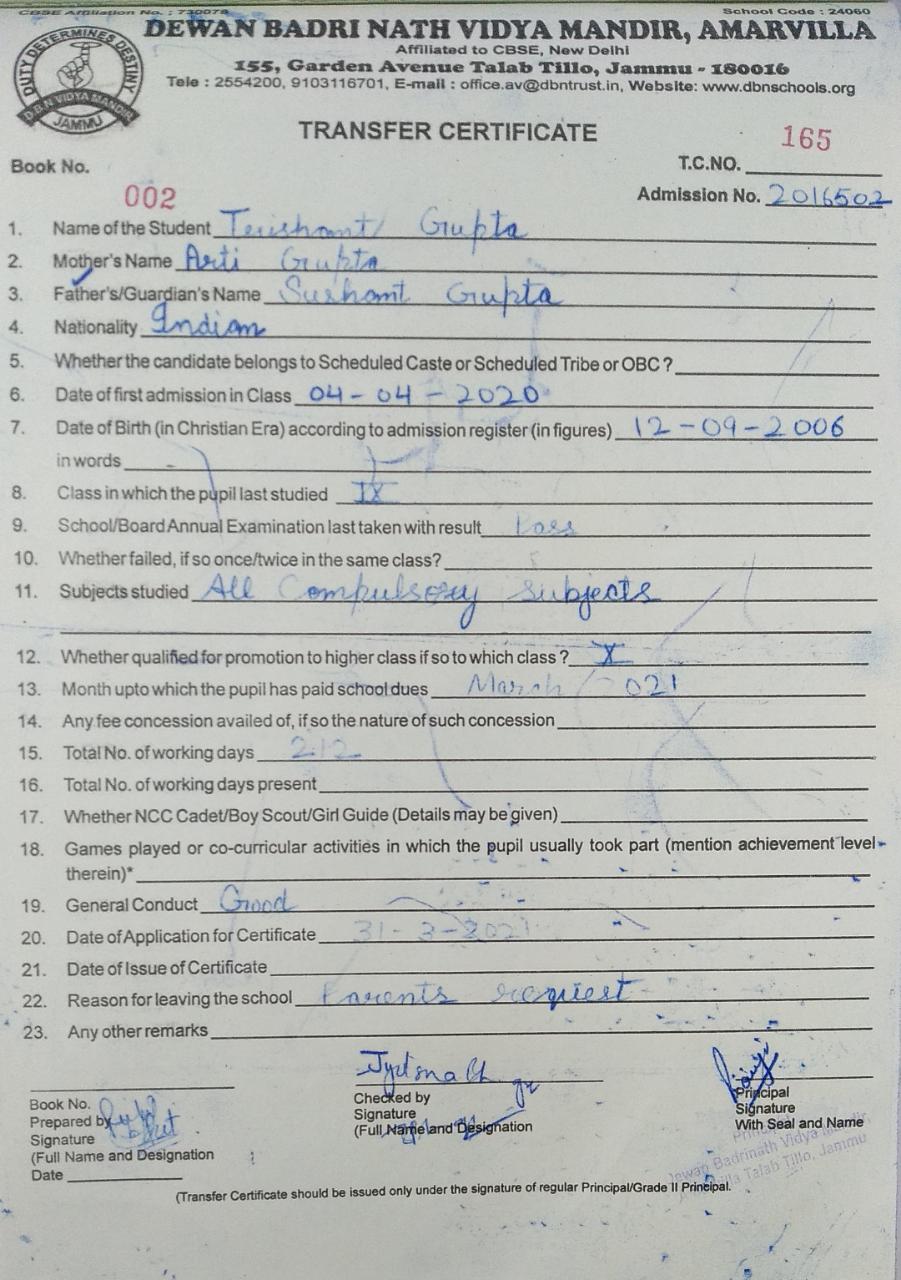 CBSE Affiliation No. : 730078 School Code : 24060
DEWAN BADRI NATH VIDYA MANDIR, AMARVILLA
Affiliated to CBSE, New Delhi
155, Garden Avenue Talab Tillo, Jammu - 180016
Tele : 2554200, 9103116701, E-mail : office.av@dbntrust.in, Website: www.dbnschools.org
DUTY DETERMINES DESTINY
D.B.N VIDYA MANDIR
JAMMU
TRANSFER CERTIFICATE
Book No. 002
T.C.NO. 165
Admission No. 2016502
1. Name of the Student Gupta
2. Mother's Name Arti Gupta
3. Father's/Guardian's Name Sushant Gupta
4. Nationality Indian
5. Whether the candidate belongs to Scheduled Caste or Scheduled Tribe or OBC ?
6. Date of first admission in Class 04-04-2020
7. Date of Birth (in Christian Era) according to admission register (in figures) 12-09-2006
in words
8. Class in which the pupil last studied IX
9. School/Board Annual Examination last taken with result Pass
10. Whether failed, if so once/twice in the same class?
11. Subjects studied All Compulsory Subjects
12. Whether qualified for promotion to higher class if so to which class ? X
13. Month upto which the pupil has paid school dues March 021
14. Any fee concession availed of, if so the nature of such concession
15. Total No. of working days 212
16. Total No. of working days present
17. Whether NCC Cadet/Boy Scout/Girl Guide (Details may be given)
18. Games played or co-curricular activities in which the pupil usually took part (mention achievement level
therein)*
19. General Conduct Good
20. Date of Application for Certificate 31-3-2021
21. Date of Issue of Certificate
22. Reason for leaving the school Parents request
23. Any other remarks
Book No.
Prepared by
Signature
(Full Name and Designation
Date
Checked by
Signature
(Full Name and Designation
Principal
Signature
With Seal and Name
Principal
Dewan Badrinath Vidya Mandir
Talab Tillo, Jammu
(Transfer Certificate should be issued only under the signature of regular Principal/Grade II Principal.